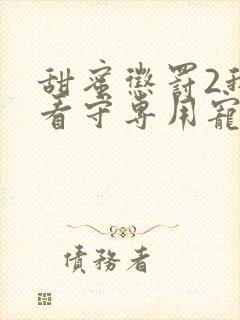 甜蜜懲罰2我
看守專用寵
債務者